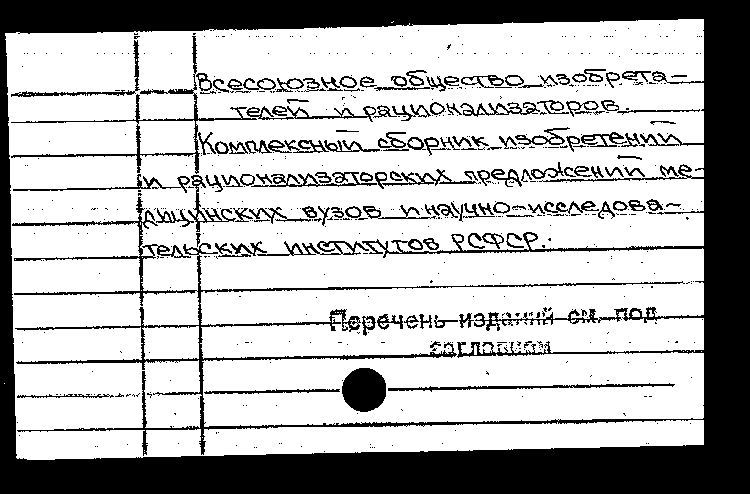 Всесоюзное общество изобрета-
телей и рационализаторов.
Комплексный сборник изобретений
и рационализаторских предложений ме-
дицинских вузов и научно-исследова-
тельских институтов РСФСР.
Перечень изданий см. под
заглавием